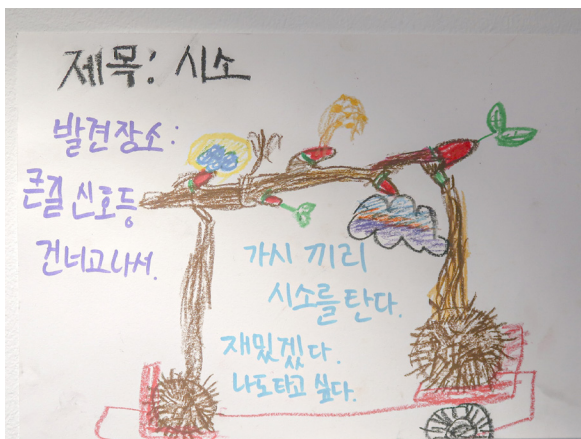 제목: 시소
발견장소:
큰길 신호등
건너고나서.
가시 끼리
시소를 탄다.
재밌겠다.
나도타고 싶다.